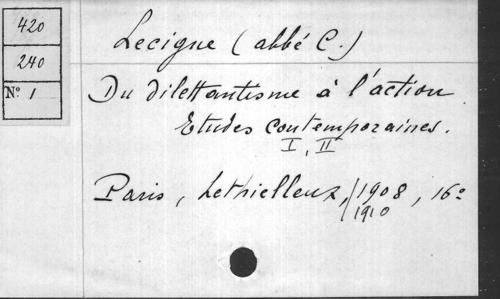 420
240
N° 1
Lecigne (abbé C.)
Du dilettantisme à l'action
Etudes contemporaines.
I, II
Paris, Lethielleux, 1908, 16°
1910